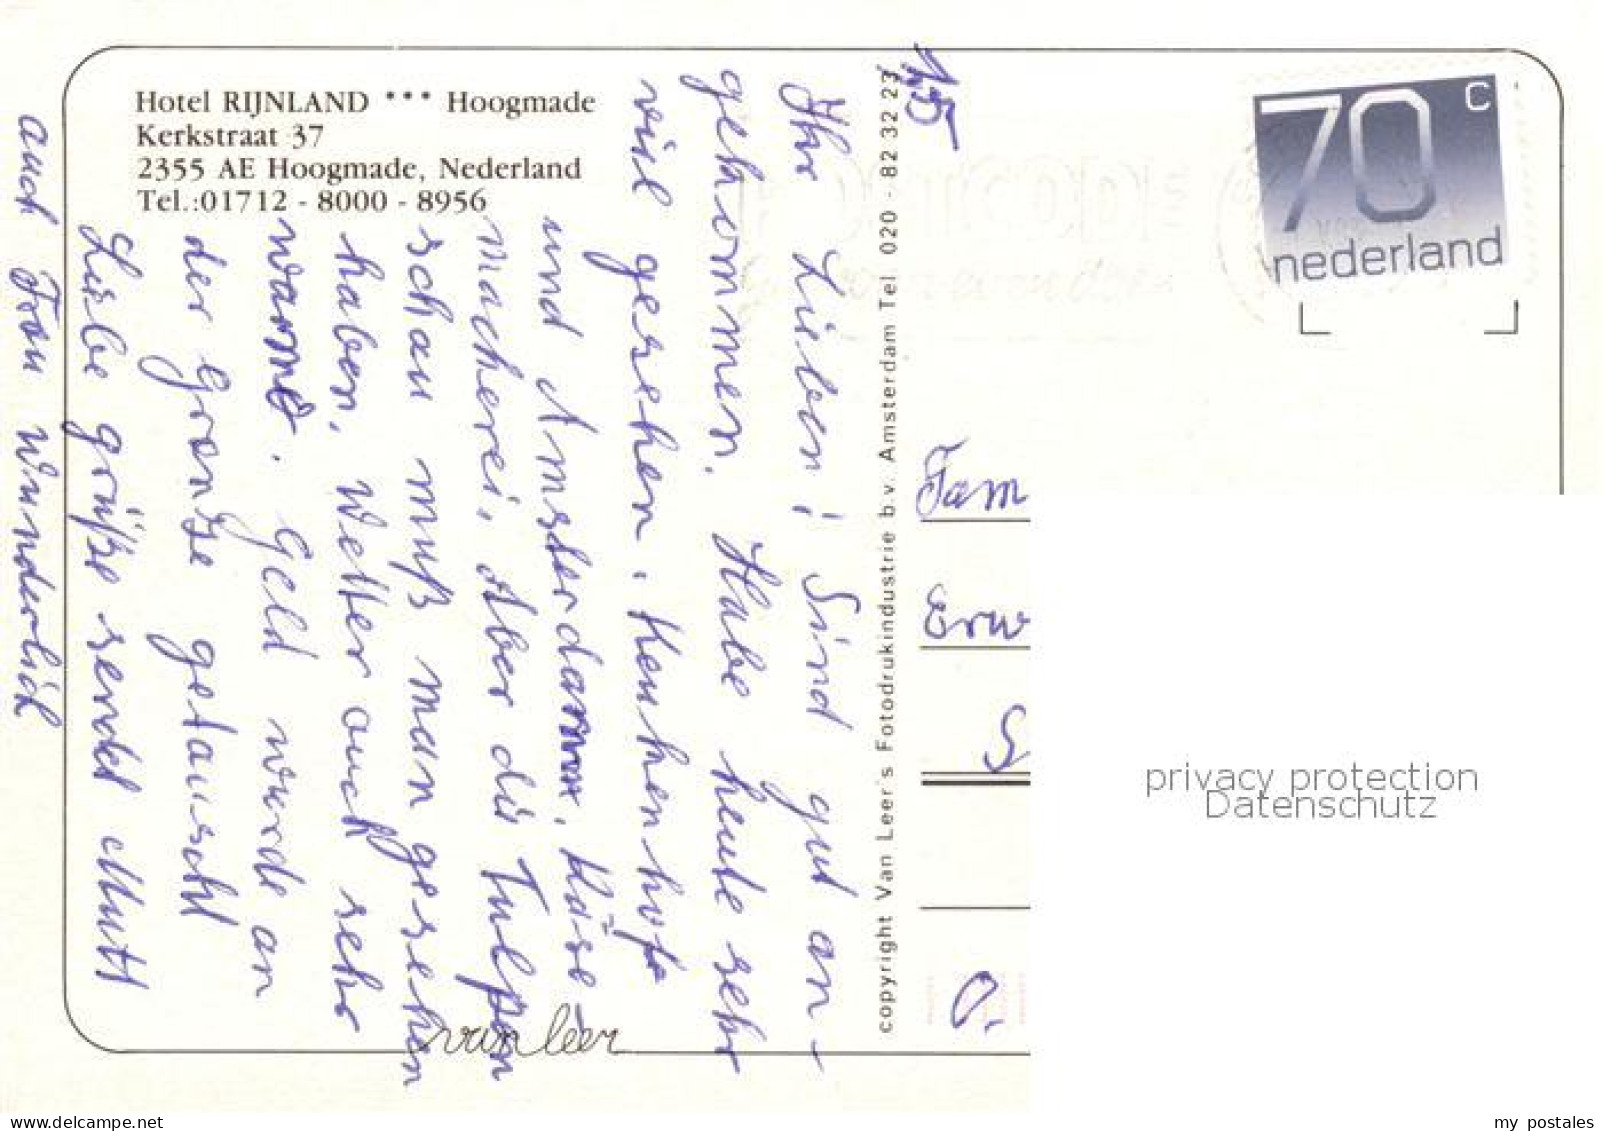 Hotel RIJNLAND *** Hoogmade
Kerkstraat 37
2355 AE Hoogmade, Nederland
Tel.:01712 - 8000 - 8956
Ihr Lieben! Sind gut an-
gekommen. Habe heute sehr
viel gesehen. Keukenhofe
und Amsterdamm, Käse-
macherei. Aber die Tulpen
schau muß man gesehen
haben. Wetter auch sehr
warm. Geld wurde an
der Grenze getauscht
Liebe grüße sendet Mutti
auch Frau Wunderlich
van leer
copyright Van Leer's Fotodrukindustrie b.v. Amsterdam Tel. 020 - 82 32 23
70 c
nederland
Fam
Erw
S
O.
privacy protection
Datenschutz
my postales